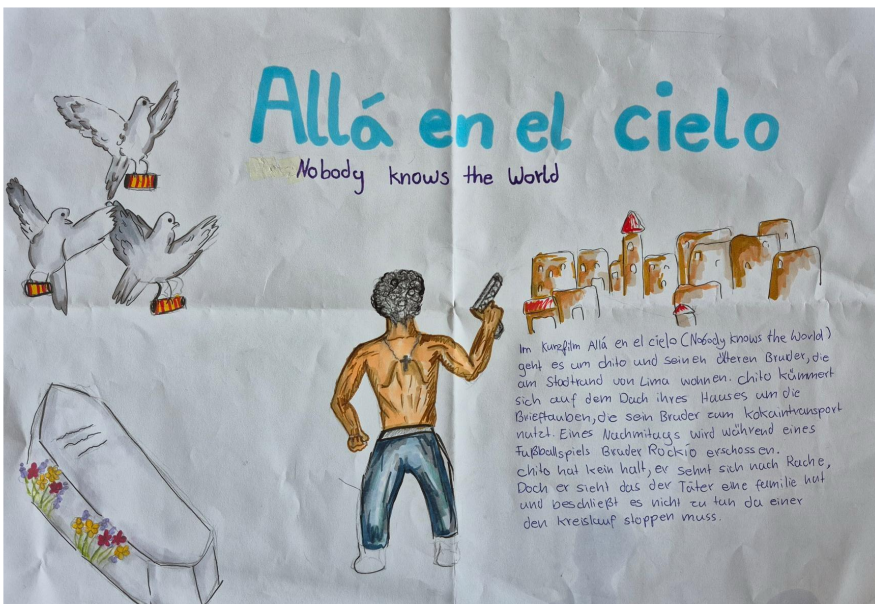 Allá en el cielo
Nobody knows the World
Im Kurzfilm Allá en el cielo (Nobody knows the World)
geht es um chito und seinen älteren Bruder, die
am Stadtrand von Lima wohnen. chito kümmert
sich auf dem Dach ihres Hauses um die
Brieftauben, die sein Bruder zum Kokaintransport
nutzt. Eines Nachmitags wird während eines
Fußballspiels Bruder Rockio erschossen.
chito hat kein halt, er sehnt sich nach Rache,
Doch er sieht das der Täter eine familie hat
und beschließt es nicht zu tun da einer
den kreislauf stoppen muss.